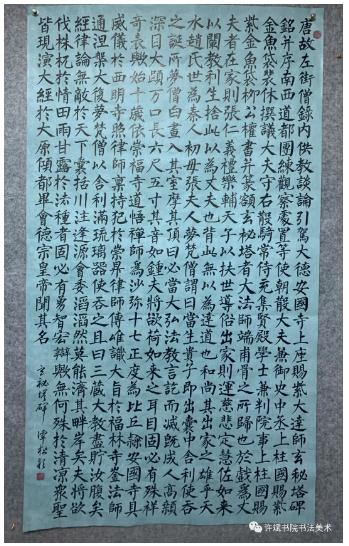 唐故左街僧錄內供談論引駕大德安國寺上座賜紫大達師玄秘塔碑
銘并序南西道都團練觀察處置等使朝散大夫兼御史中丞上柱國賜紫
金魚袋裴休撰議大夫守右散騎常侍充集賢殿學士兼判院事上柱國賜
紫金魚袋柳公權書并篆額玄秘塔者大法師端甫骨之所歸也於戲為丈
夫者在家則張仁義禮樂輔天子以扶世導俗出家則運慈悲定慧佐如来
以闡教利生捨此以為丈夫也背此無以為達道也和尚其出家之雄乎天
水趙氏世為秦人初母張夫人夢梵僧謂曰當生貴子即出囊中舍利使吞
之誕所夢僧白晝入其室摩其頂曰必當大弘法教言訖而滅既成人高顙
深目大頤方口長六尺五寸其音如鍾夫將欲荷如来之耳目固必有殊祥
奇表歟始十歲依崇福寺道悟禪師為沙弥十七正度為比丘隸安國寺具
威儀於西明寺照律師禀持犯於崇昇律師傳唯識大旨於福林寺崟法師
通涅槃大復夢梵僧以舍利滿琉璃器使吞之且曰三藏大教盡貯汝腹矣
經律論無敵於天下囊括川注逢源會委滔滔然莫能濟其畔岸矣夫將欲
伐株杌於情田雨甘露於法種者固必有勇智宏辯歟無何殊於清涼衆聖
皆現演大經於大原傾都畢會德宗皇帝聞其名
玄秘塔碑
许斌书院书法美术